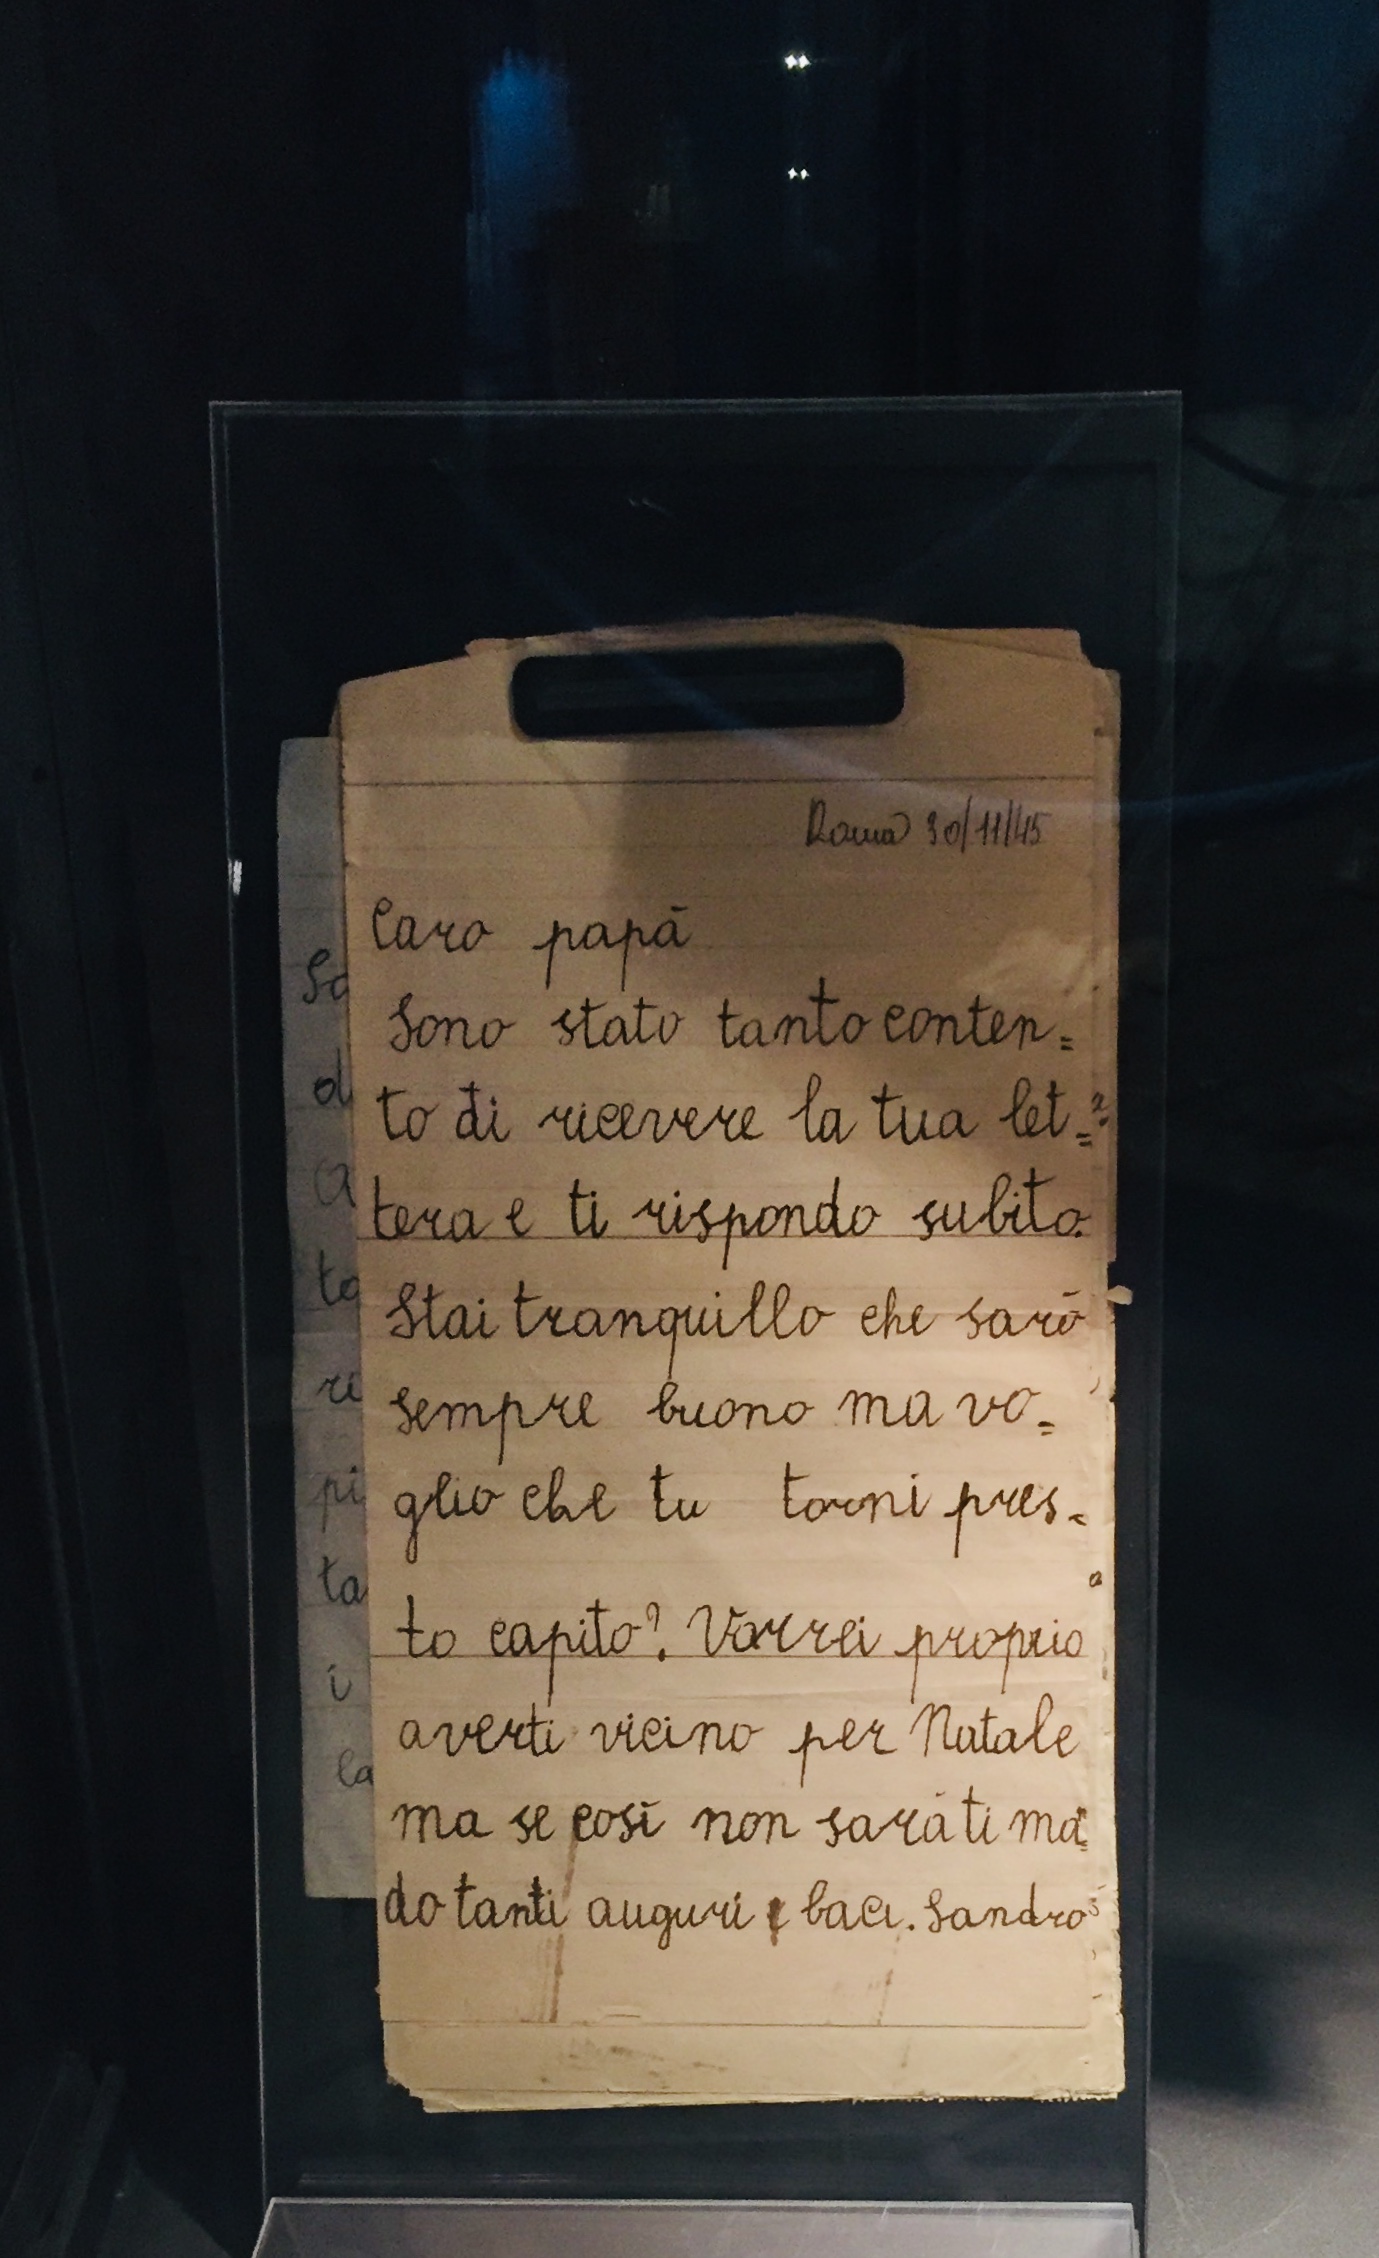 Roma 30/11/45
Caro papā
Sono stato tanto conten=
to di ricevere la tua let=
tera e ti rispondo subito.
Stai tranquillo che sarō
sempre buono ma vo=
glio che tu torni pres=
to capito? Vorrei proprio
averti vicino per Natale
ma se cosī non sarā ti ma=
do tanti auguri e baci. Sandro
So
d
a
to
ri
pi
ta
i
ca